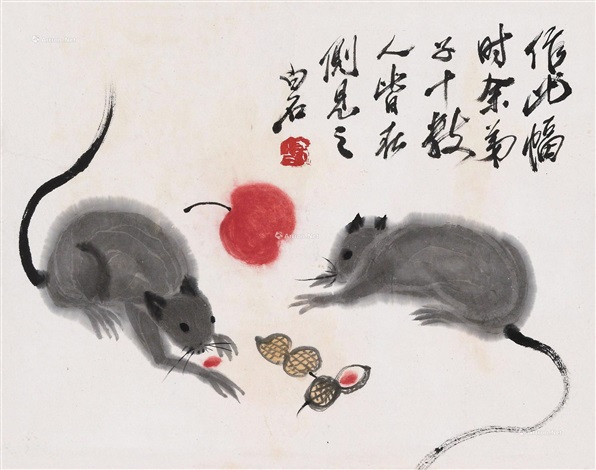 作此幅
时余弟
子十数
人皆在
侧见之
白石